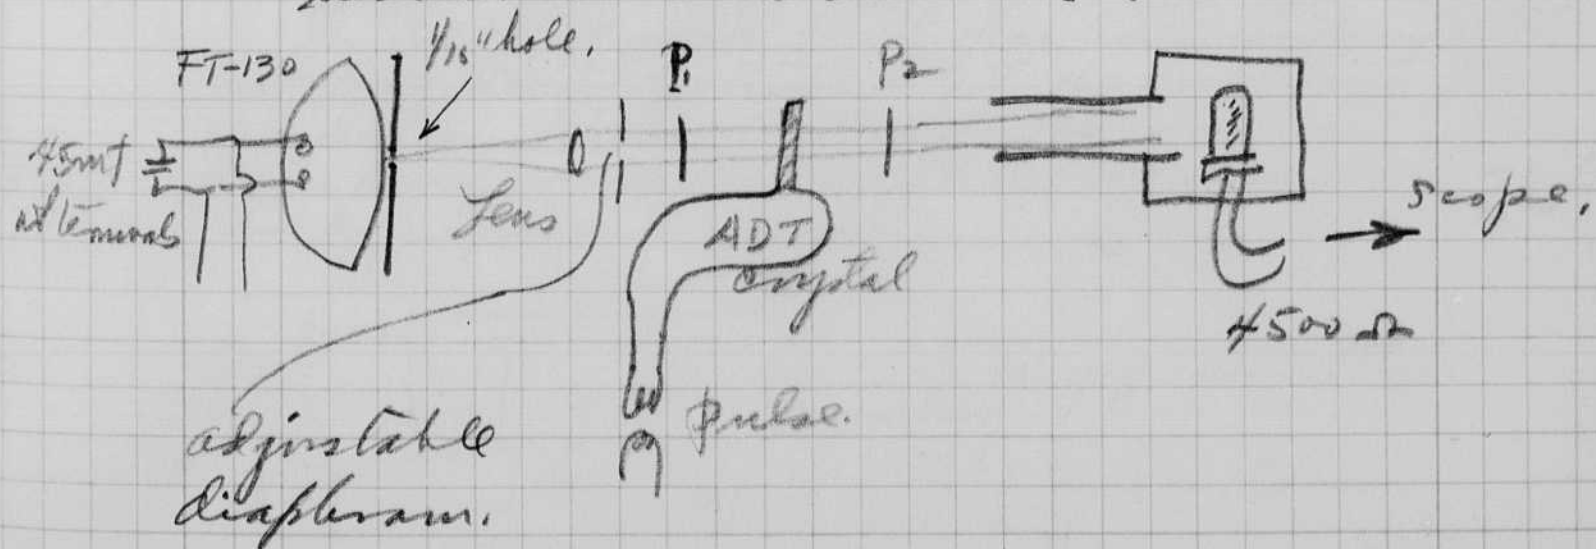 FT-130
1/16" hole.
P1
P2
45mf
at terminals
Lens
ADT
crystal
scope.
4500 Ω
pulse.
adjustable
diaphram.